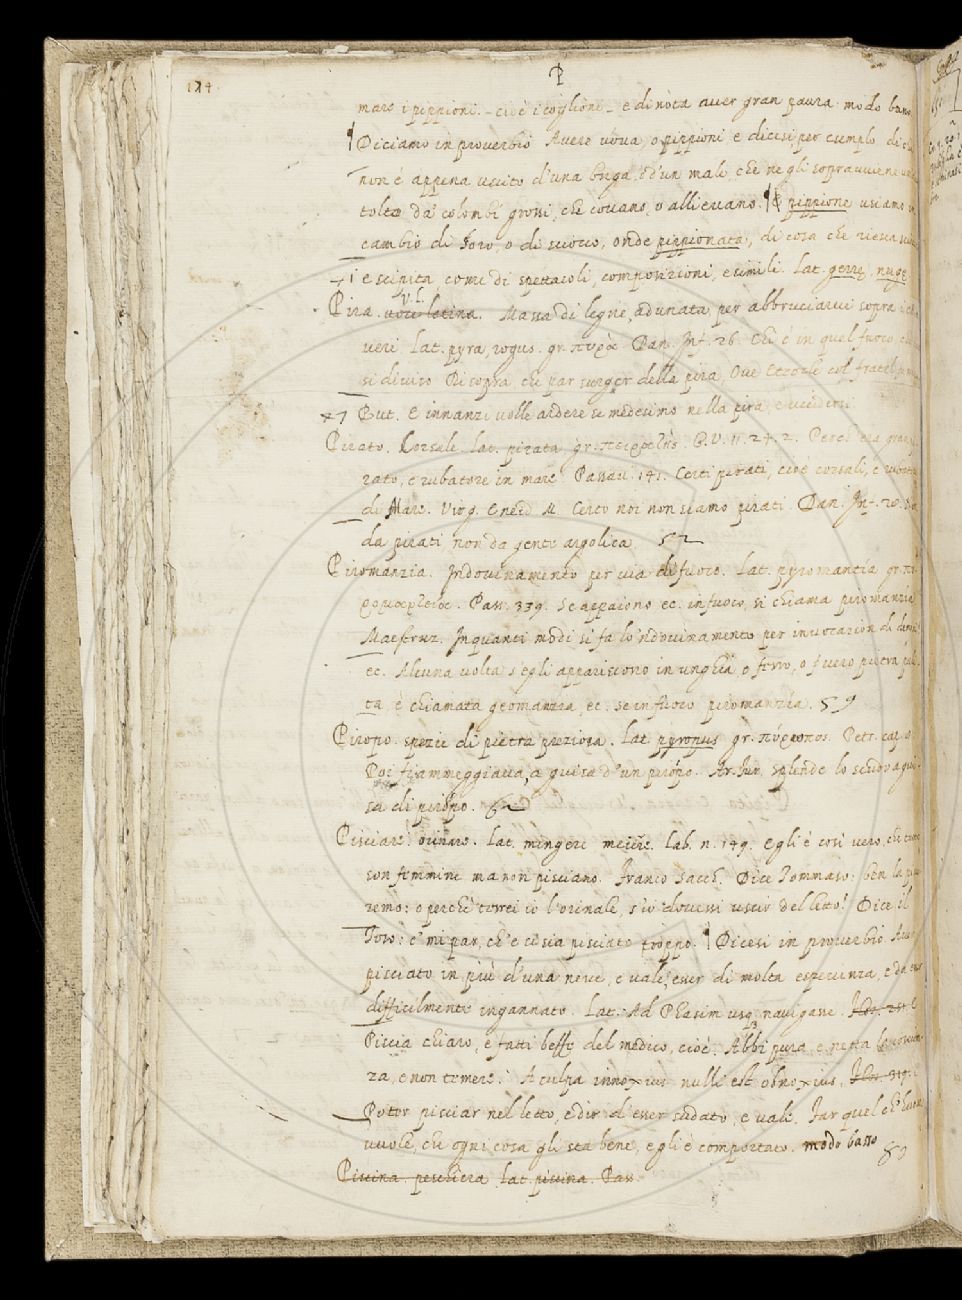 174
P
mare i pippioni. cioè i coglioni. e dinota auer gran paura modo basso
Diciamo in prouerbio Auere uoua, o pippioni e dicesi, per esempio, di chi
non è appena uscito d'una briga, o d'un male, che ne gli soprauuiene
tolta da' colombi grossi, che couano, o allieuano. E pippione usiamo in
cambio di soro, o di sciocco, onde pippionata, di cosa che riesca
e scipita, come di spettacoli, composizioni, e simili. Lat. gerre, nuge
V. L.
Pira. uoce latina. Massa di legne, adunata per abbruciarui sopra i
ueri Lat. pyra, rogus. gr. πυρὰ Dan. Inf. 26. Chi è in quel fuoco, che
si diuiso Di sopra che par surger della pira, Oue Eteocle col fratel
But. E innanzi uolle ardere se medesimo nella pira, e uccidersi
Pirato. Corsale. Lat. pirata gr. πειρατὴς. G. V. 11. 24. 2. Perch' era gran
rato, e rubatore in mare. Passau. 141. Certi pirati, cioè corsali, e rubatori
di Mare. Virg. Eneid M. Certo noi non siamo pirati. Dan. Inf. 28. Non
da pirati non da gente argolica. 52
Piromanzia. Indouinamento per uia di fuoco. Lat. pyromantia gr.
Pass. 339. Se appaiono ec. in fuoco, si chiama piromanzia
Maestruz. In quanti modi si fa lo 'ndouinamento per inuocazion di
ec. Alcuna uolta s'egli appariscono in unghia, o ferro, o fuero pietra
ta, è chiamata geomanzia, ec. se in fuoco piromanzia. 59
Piropo. spezie di pietra preziosa. Lat. pyropus gr. πυρωπος. Petr. cap.
Poi fiammeggiaua, a guisa d'un piròpo. Ar. Fur. splende lo scudo a gui
sa di piròpo. 62
Pisciare. orinare. Lat. mingere meiere. Lab. n. 149. Egli è così uero, che
son femmine ma non pisciano. Franco Sacch. Dice Tommaso: ben la
remo: o perchè torrei io l'orinale, s'io douessi uscir del letto! Dice il
Toso: e' mi par, ch' e' ci sia pisciato troppo. Dicesi in prouerbio Auer
pisciato in più d'una neue, e uale, esser di molta esperienza, e da esser
difficilmente ingannato. Lat. Ad Phasim usq. nauigasse. Flos. 251.
Piscia chiaro, e fatti beffe del medico, cioè. Abbi pura, e netta la coscien
za, e non temere. A culpa innoxius nulli est obnoxius, Flos. 319.
Poter pisciar nel letto, e dir d'esser sudato, e uale. Far quel ch'
uuole, che ogni cosa gli sta bene, e gli è comportato. modo basso 89
Piscina. peschiera Lat. piscina. Pass.